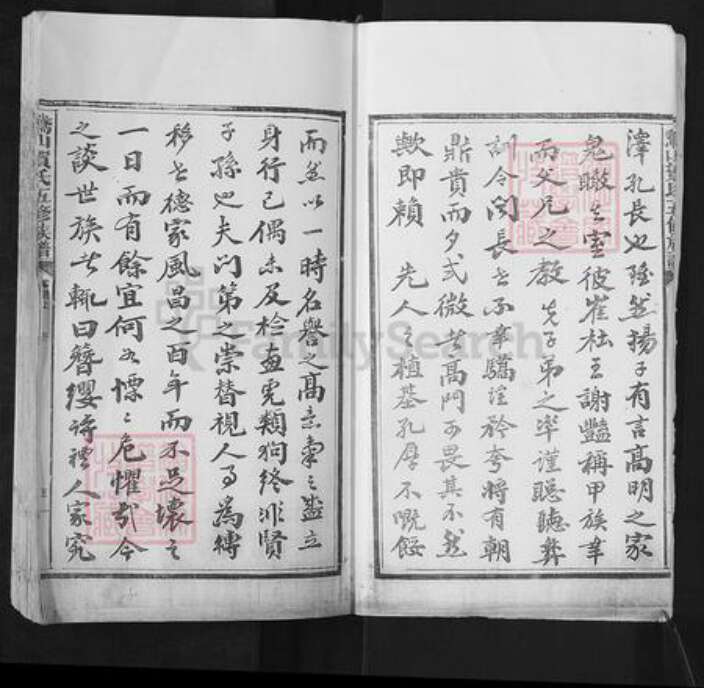 澤孔長也雖然揚子有言高明之家
鬼瞰其室彼崔杜王謝豔稱甲族幸
而父兄之教先子弟之率謹聰聽彝
訓令聞長世不幸驕淫矜夸將有朝
鼎貴而夕式微者高門可畏其不然
歟即賴 先人之植基孔厚不嘅餒
而然以一時名譽之高意氣之盛立
身行己偶未及檢畫虎類狗終非賢
子孫也夫門第之崇替視人事為轉
移世德家風昌之百年而不足壞之
一日而有餘宜何如慄慄危懼哉今
之談世族者輒曰簪纓詩禮人家究
氏五修族譜
FamilySearch